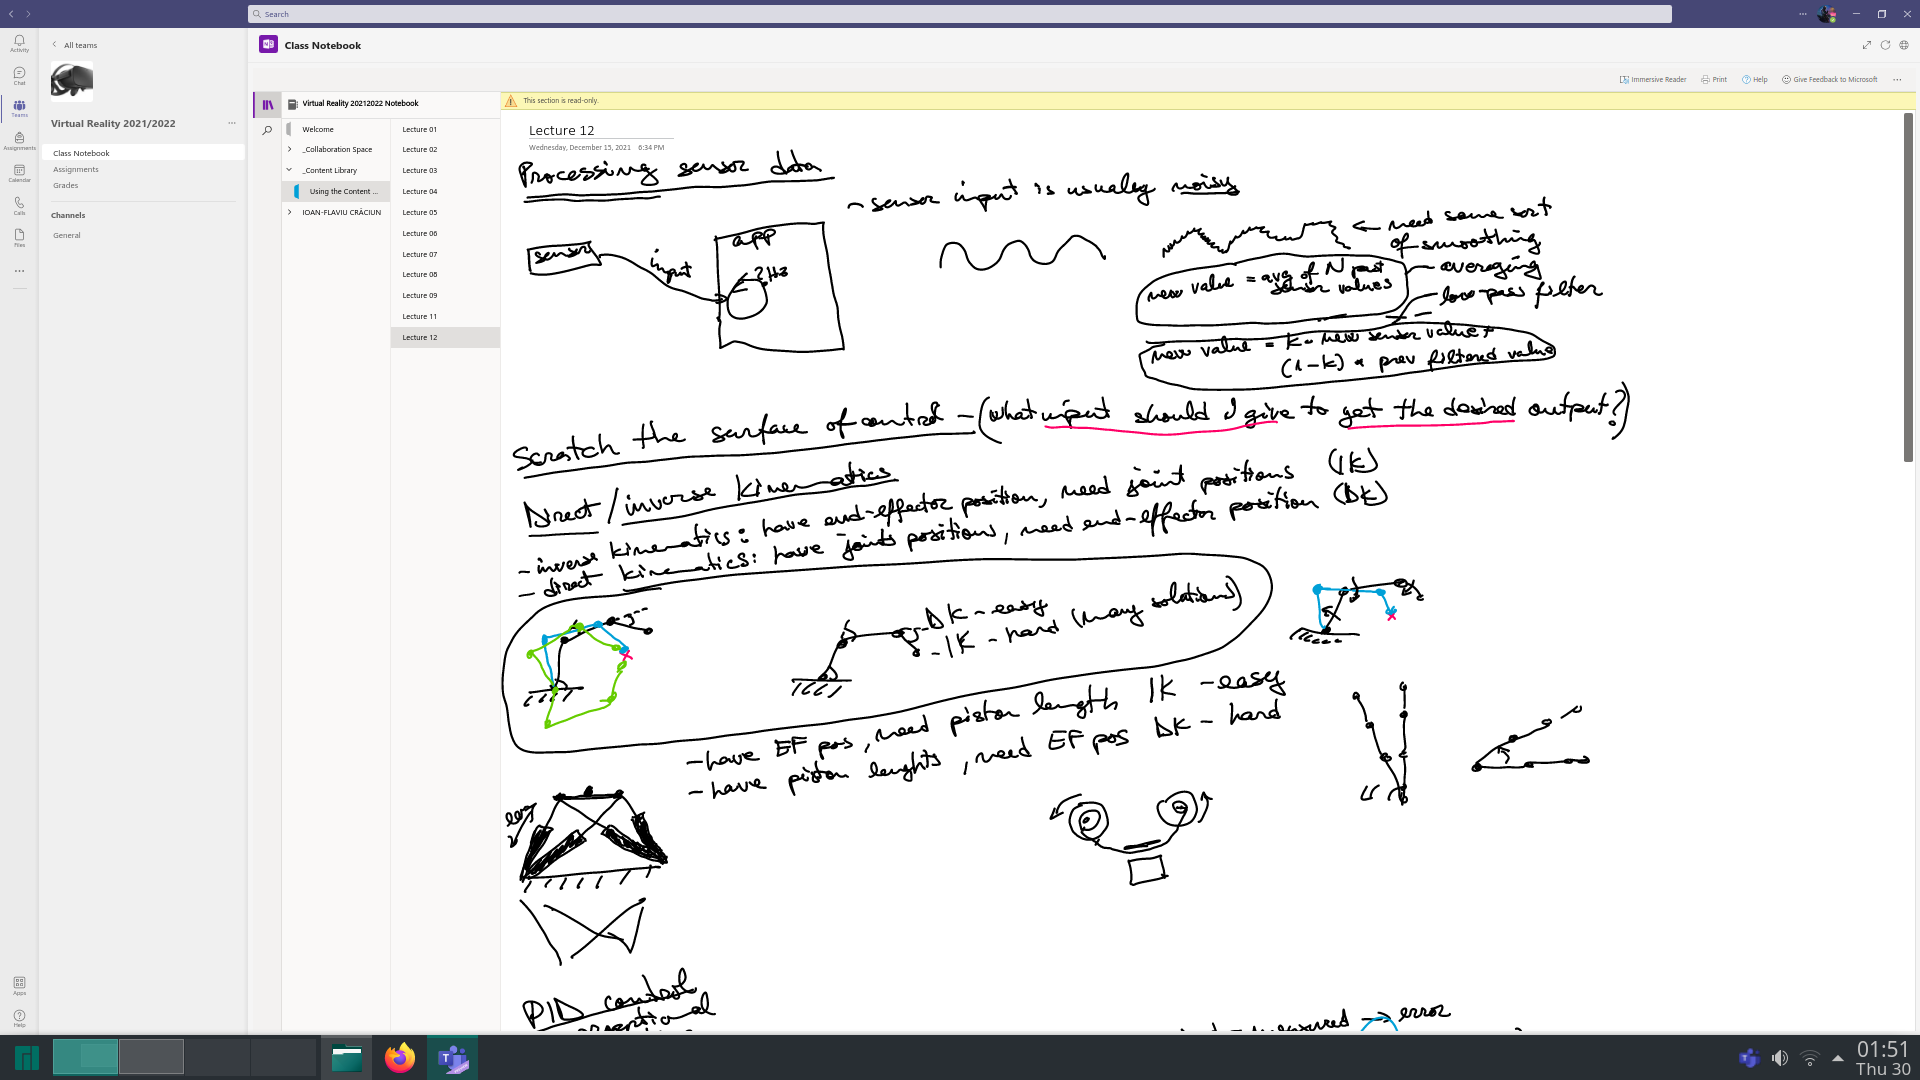 Search
Activity
Chat
Teams
Assignments
Calendar
Calls
Files
Apps
Help
All teams
Virtual Reality 2021/2022
Class Notebook
Assignments
Grades
Channels
General
Class Notebook
Immersive Reader
Print
Help
Give Feedback to Microsoft
Virtual Reality 20212022 Notebook
Welcome
_Collaboration Space
_Content Library
Using the Content ...
IOAN-FLAVIU CRĂCIUN
Lecture 01
Lecture 02
Lecture 03
Lecture 04
Lecture 05
Lecture 06
Lecture 07
Lecture 08
Lecture 09
Lecture 11
Lecture 12
This section is read-only.
Lecture 12
Wednesday, December 15, 2021 6:34 PM
Processing sensor data
- sensor input is usually noisy
sensor
input
app
? Hz
← need some sort
of smoothing
- averaging
- low pass filter
new value = avg of N past
sensor values
new value = k * new sensor value +
(1-k) * prev filtered value
Scratch the surface of control - (what input should I give to get the desired output?)
Direct / inverse kinematics
- inverse kinematics: have end-effector position, need joint positions (IK)
- direct kinematics: have joints positions, need end-effector position (DK)
DK - easy
- IK - hard (many solutions)
- have EF pos, need piston length IK - easy
- have piston lenghts, need EF pos DK - hard
PID control
error
01:51
Thu 30